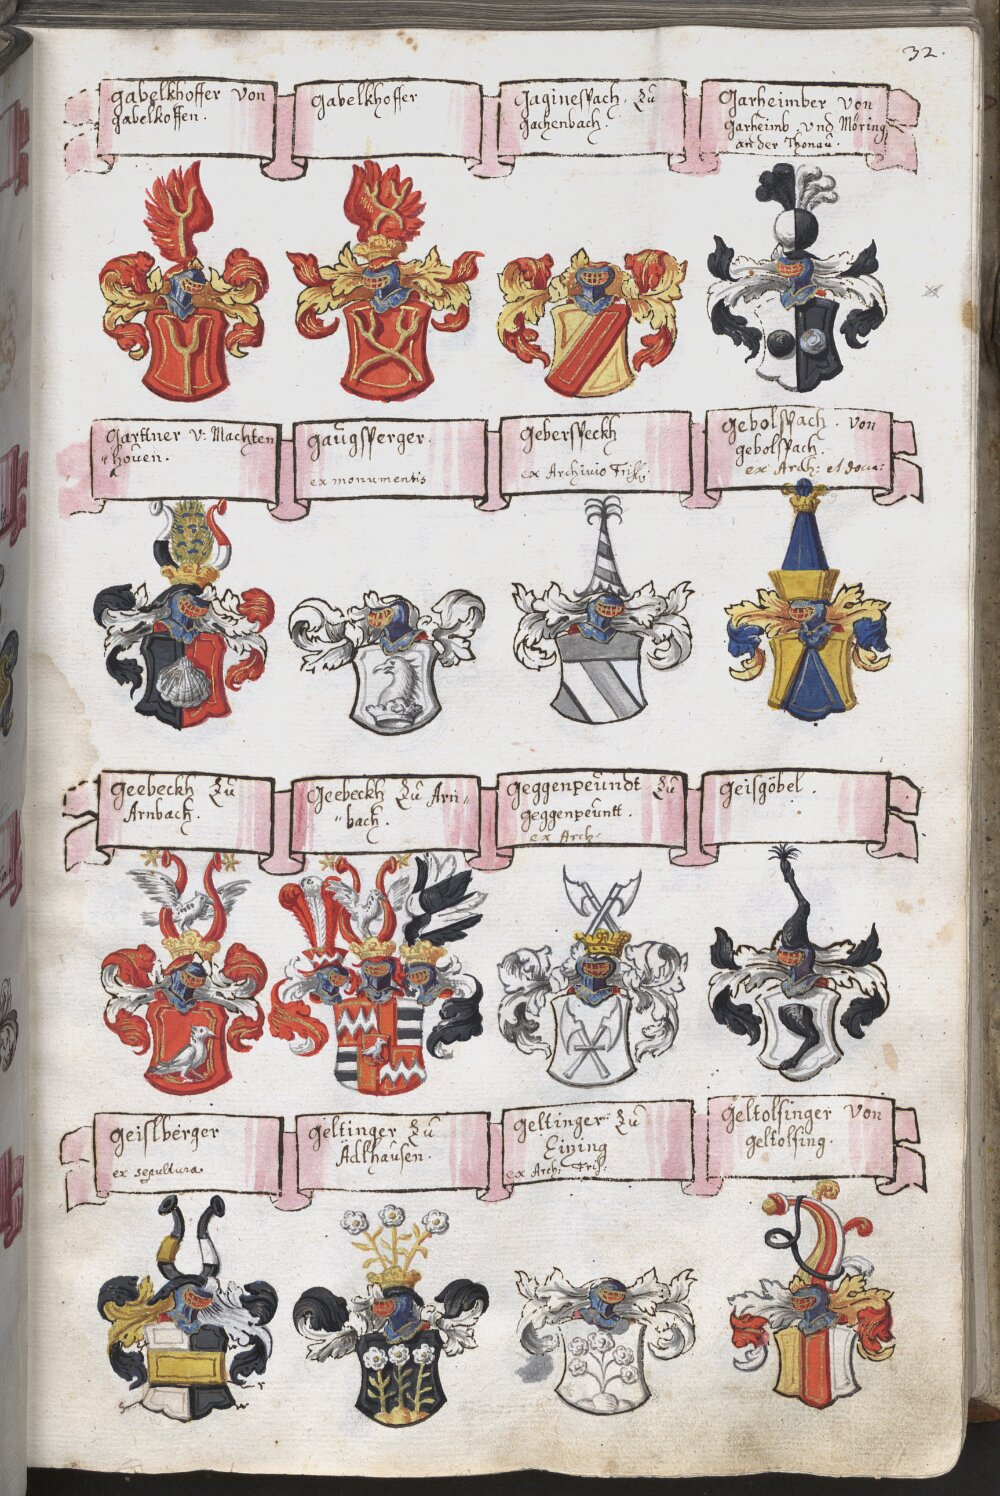 32.
Gabelkhoffer von
gabelkoffen.
Gabelkhoffer
Gaginespach. Zu
Gachenbach.
Garheimber von
Garheimb. und Möring
an der Thonau.
Garttner v: Machten
"houen.
Gaugsperger.
ex monumentis
Geberspeckh
ex Archivio Fris:
Gebolspach. von
gebolspach.
ex Arch: et docu:
Geebeckh Zu
Arnbach.
Geebeckh Zu Arn"
"bach.
Geggenpeundt Zu
Geggenpeuntt.
ex Arch.
Geisgöbel.
Geislberger
ex sepultura
Geltinger Zu
Ädlhausen.
Geltinger Zu
ex Arch: Fris:
Geltolfinger von
Geltolfing.